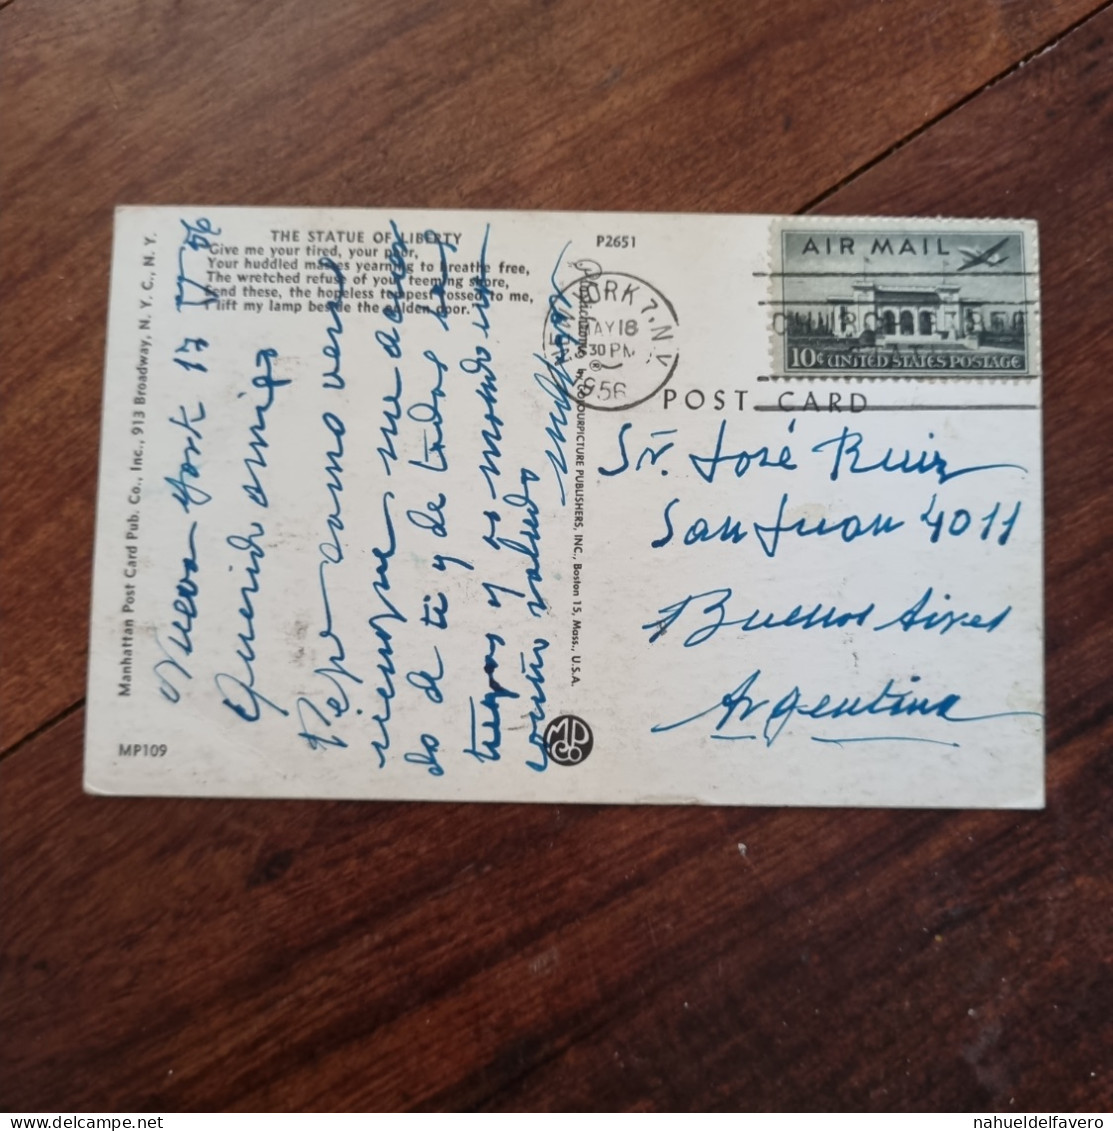 THE STATUE OF LIBERTY
"Give me your tired, your poor,
Your huddled masses yearning to breathe free,
The wretched refuse of your teeming shore,
Send these, the hopeless tempest tossed to me,
I lift my lamp beside the golden door."
P2651
Manhattan Post Card Pub. Co., Inc., 913 Broadway, N. Y. C., N. Y.
MP109
by COLOURPICTURE PUBLISHERS, INC., Boston 15, Mass., U.S.A.
YORK 7, N.Y.
MAY 18
30 PM
1956
AIR MAIL
10¢ UNITED STATES POSTAGE
POST CARD
Nueva York 17 V 56
Querido amigo
Pepe como verás
siempre me acuer
do de ti y de todos los
tuyos y os mando un
saludo
Sr. José Ruiz
San Juan 4011
Buenos Aires
Argentina
nahueldelfavero